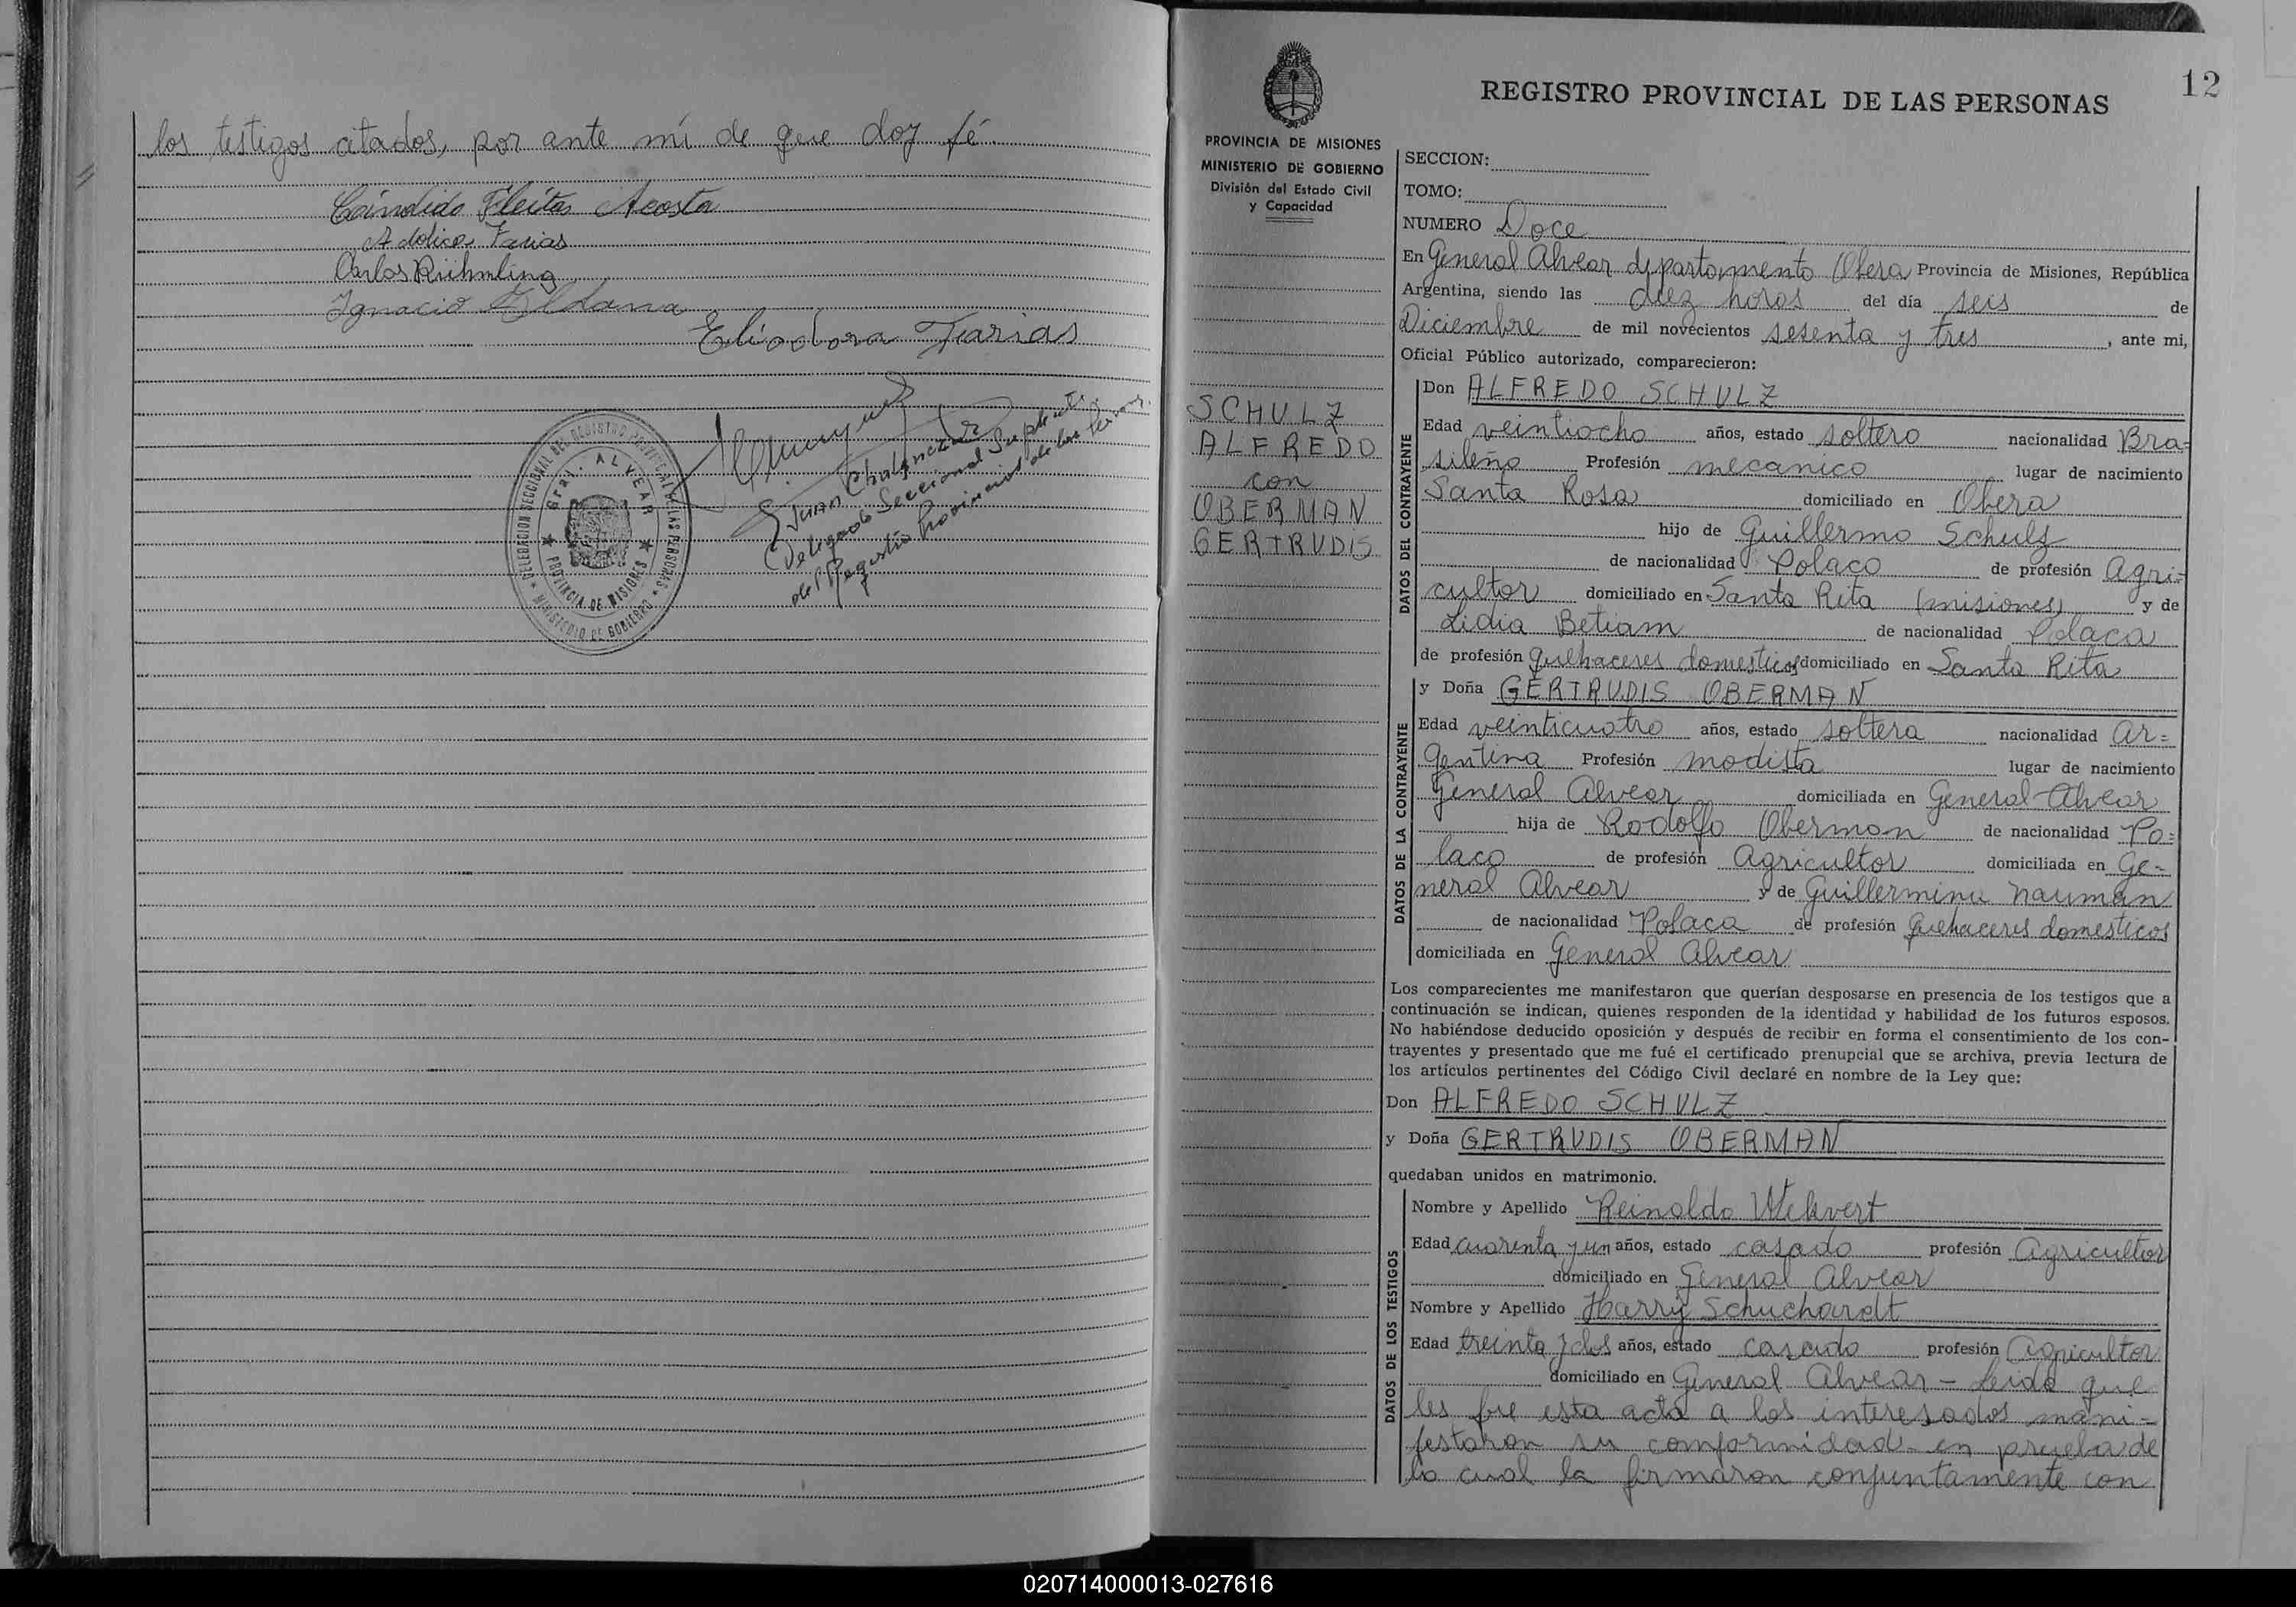 los testigos citados, por ante mí de que doy fé
Cándido Fleitas Acosta
Farias
Carlos Rühmling
Ignacio
Eliodora Farias
Juan
Delegado Seccional Suplente
del Registro Provincial de las Personas
DELEGACION SECCIONAL DEL REGISTRO PROVINCIAL DE LAS PERSONAS
Gral. ALVEAR
PROVINCIA DE MISIONES
MINISTERIO DE GOBIERNO
12
REGISTRO PROVINCIAL DE LAS PERSONAS
PROVINCIA DE MISIONES
MINISTERIO DE GOBIERNO
División del Estado Civil
y Capacidad
SCHULZ
ALFREDO
con
OBERMAN
GERTRUDIS
SECCION:
TOMO:
NUMERO Doce
En General Alvear departamento Obera Provincia de Misiones, República
Argentina, siendo las diez horas del día seis de
Diciembre de mil novecientos sesenta y tres, ante mi,
Oficial Público autorizado, comparecieron:
DATOS DEL CONTRAYENTE
Don ALFREDO SCHULZ
Edad veintiocho años, estado soltero nacionalidad Bra=
sileño Profesión mecanico lugar de nacimiento
Santa Rosa domiciliado en Obera
hijo de Guillermo Schulz
de nacionalidad Polaco de profesión Agri=
cultor domiciliado en Santa Rita (misiones) y de
Lidia Betiam de nacionalidad Polaca
de profesión quehaceres domesticos domiciliado en Santa Rita
DATOS DE LA CONTRAYENTE
y Doña GERTRUDIS OBERMAN
Edad veinticuatro años, estado soltera nacionalidad Ar=
gentina Profesión modista lugar de nacimiento
General Alvear domiciliada en General Alvear
hija de Rodolfo Oberman de nacionalidad Po=
laco de profesión Agricultor domiciliada en Ge=
neral Alvear y de Guillermina Nauman
de nacionalidad Polaca de profesión quehaceres domesticos
domiciliada en General Alvear
Los comparecientes me manifestaron que querían desposarse en presencia de los testigos que a
continuación se indican, quienes responden de la identidad y habilidad de los futuros esposos.
No habiéndose deducido oposición y después de recibir en forma el consentimiento de los con-
trayentes y presentado que me fué el certificado prenupcial que se archiva, previa lectura de
los artículos pertinentes del Código Civil declaré en nombre de la Ley que:
Don ALFREDO SCHULZ
y Doña GERTRUDIS OBERMAN
quedaban unidos en matrimonio.
DATOS DE LOS TESTIGOS
Nombre y Apellido Reinaldo
Edad cuarenta y un años, estado casado profesión Agricultor
domiciliado en General Alvear
Nombre y Apellido Harry Schuchardt
Edad treinta y dos años, estado casado profesión Agricultor
domiciliado en General Alvear - Leida que
les fue esta acta a los interesados mani=
festaron su conformidad en prueba de
lo cual la firmaron conjuntamente con
020714000013-027616